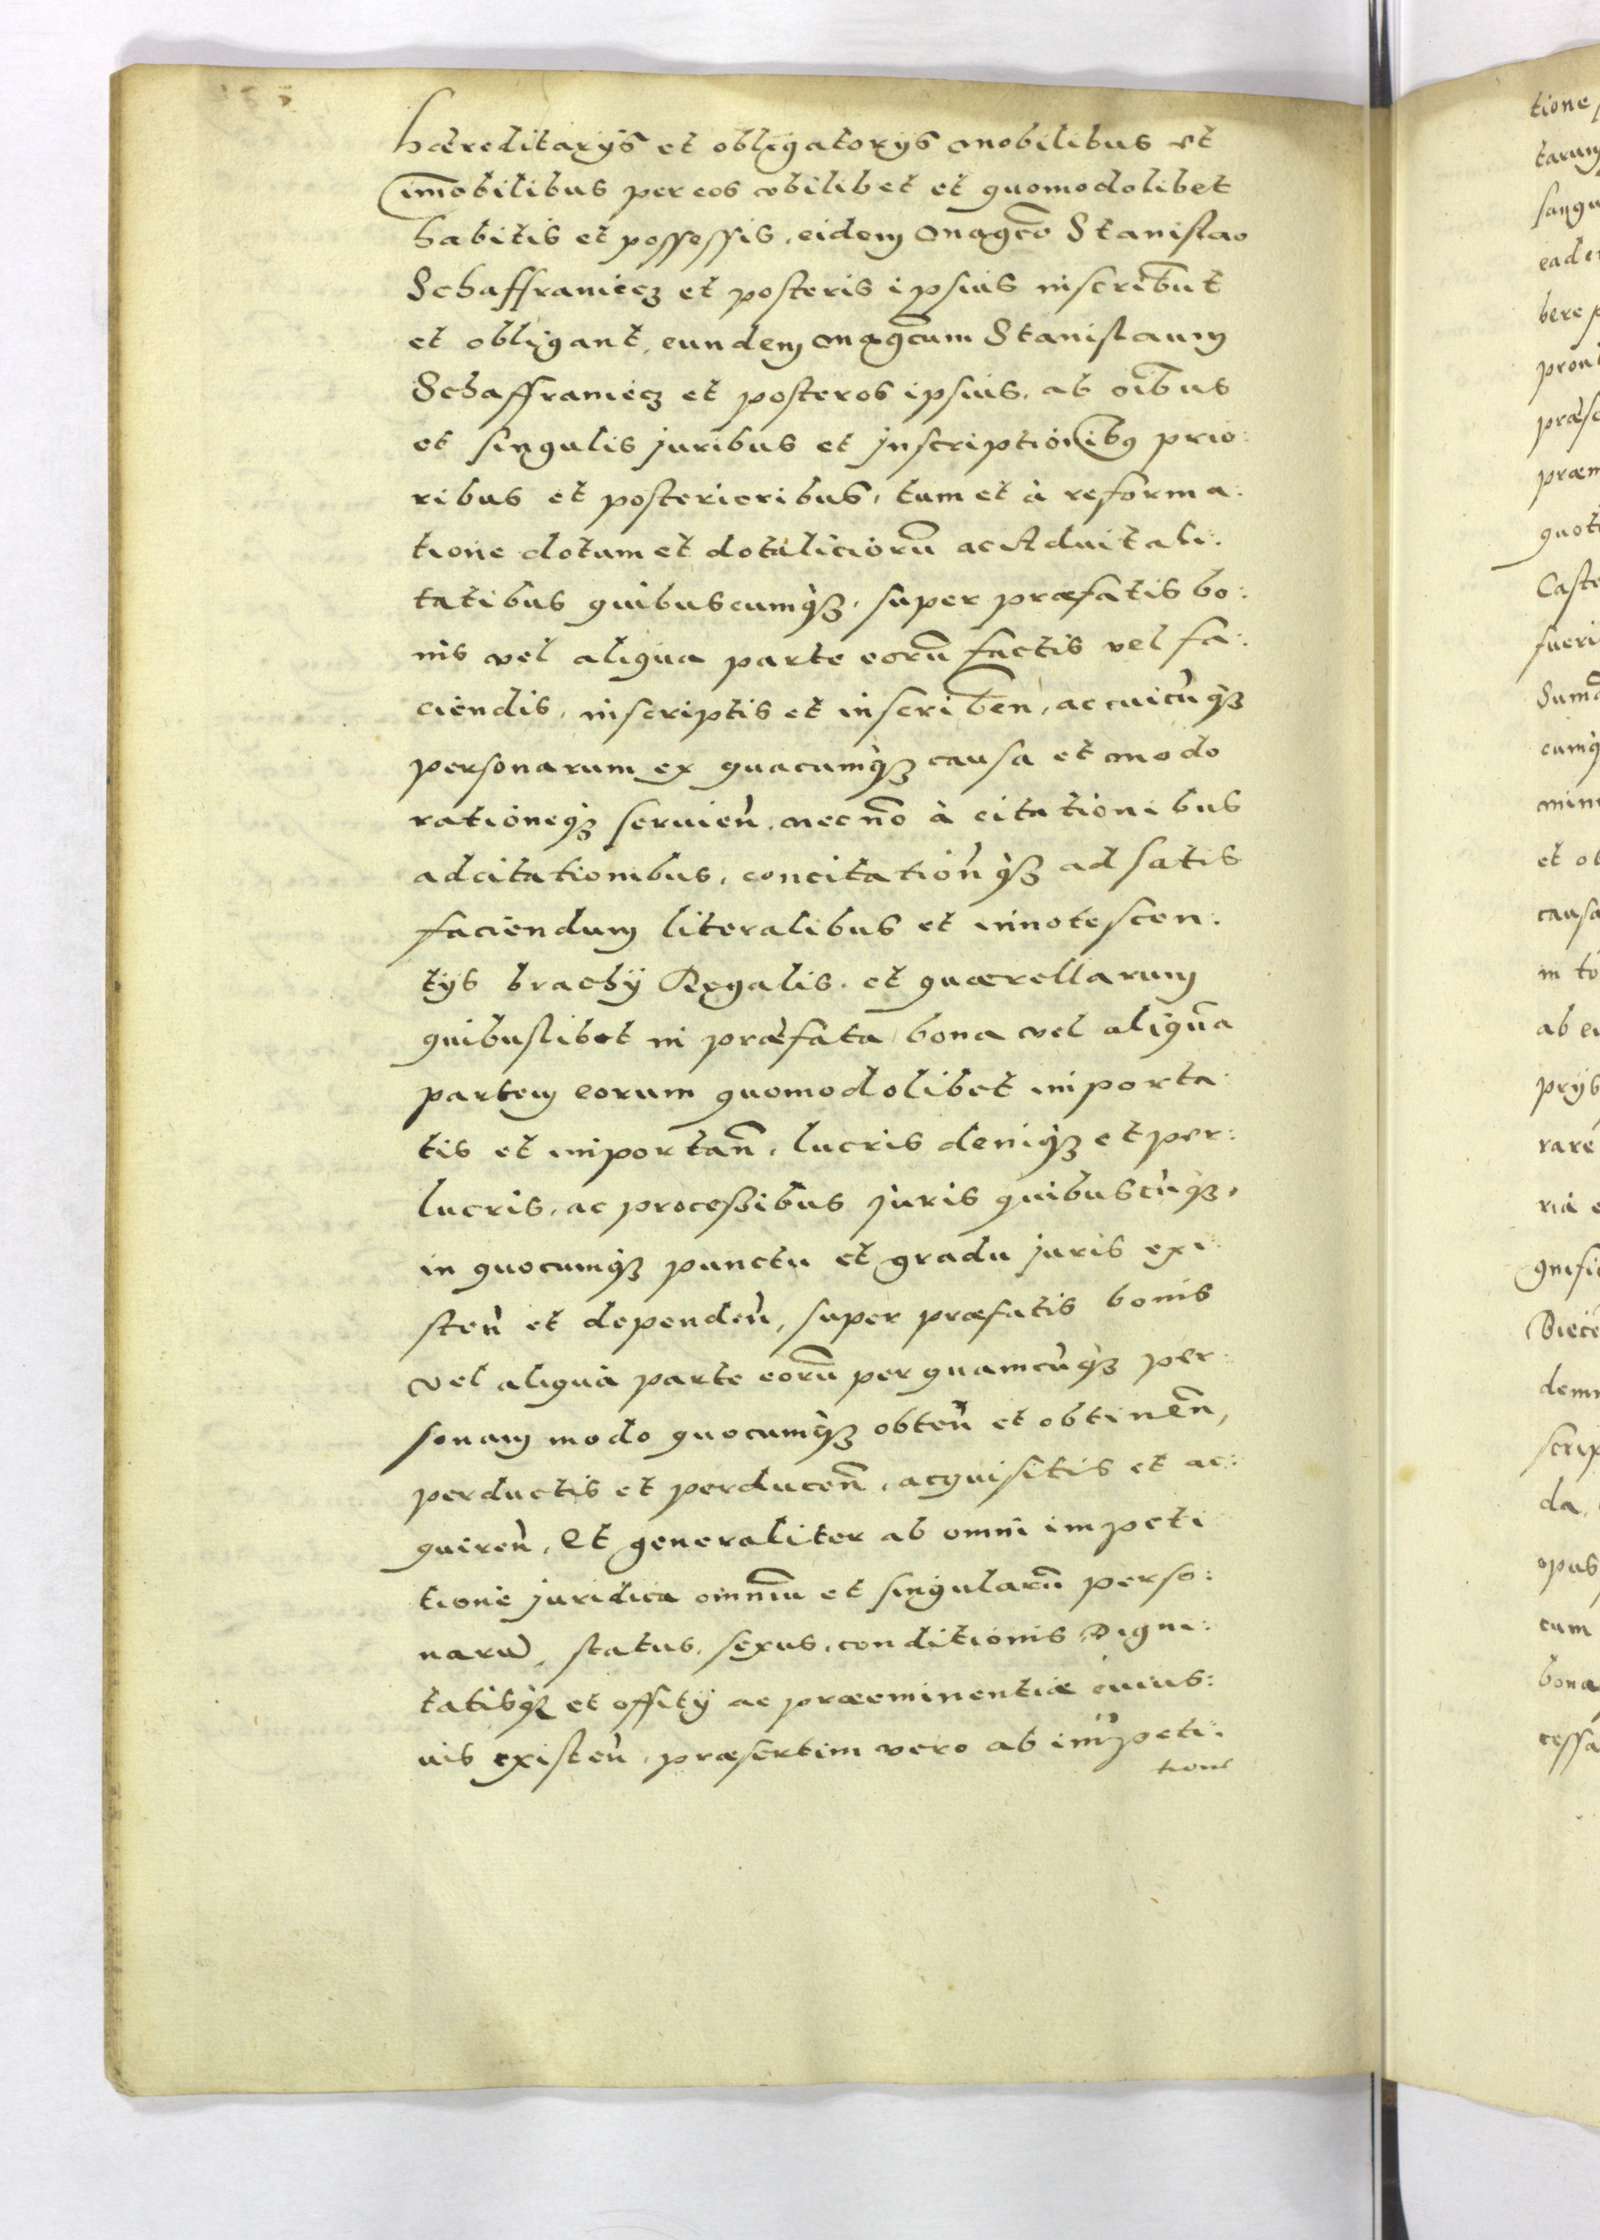 hæreditarÿs et obligatorÿs mobilibus et
im̄obilibus per eos vbilibet et quomodolibet
habitis et possessis, eidem Magco̅ Stanislao
Schaffraniecz et posteris ipsius inscribu̅t
et obligant, eundem Magc̅um Stanislaum
Schaffraniecz et posteros ipsius, ab oi̅bus
et singulis juribus et jnscriptionibꝯ prio:
ribus et posterioribus, tum et à reforma:
tione dotum et dotaliciorū ac Aduitali:
tatibus quibuscumqꝫ, super præfatis bo:
nis vel aliqua parte eorū factis vel fa:
ciendis, inscriptis et inscriben̅, ac cuicùqꝫ
personarum ex quacumqꝫ causa et modo
rationeqꝫ seruien̅, nec no̅ à citationibus
adcitationibus, concitation̅qꝫ ad satis
faciendum literalibus et innotescen:
tÿs brachÿ Regalis, et quærellarum
quibuslibet in præfata bona vel aliqua̅
partem eorum quomodolibet importa
tis et importan̅, lucris deniqꝫ et per:
lucris, ac processibus juris quibuscùqꝫ,
in quocumqꝫ punctu et gradu juris exi:
sten̅ et dependen̅, super præfatis bonis
vel aliquà parte eorū per quamcùqꝫ per:
sonam modo quocumqꝫ obten̅ et obtinen̅,
perductis et perducen̅, acquisitis et ac:
quiren̅, Et generaliter ab omni impeti
tione juridica omniū et singularū perso:
narū, status, sexus, conditionis Digni:
tatisqꝫ et offitÿ ac præeminentiæ cuius:
uis existen̅, præsertim vero ab impeti:
tione
tione
tarum
bere
Caste
cumq
et ob
causa
in to
ab e
prÿs
rare
ria
demn
scrip
da,
opus
cum
bona
cessa